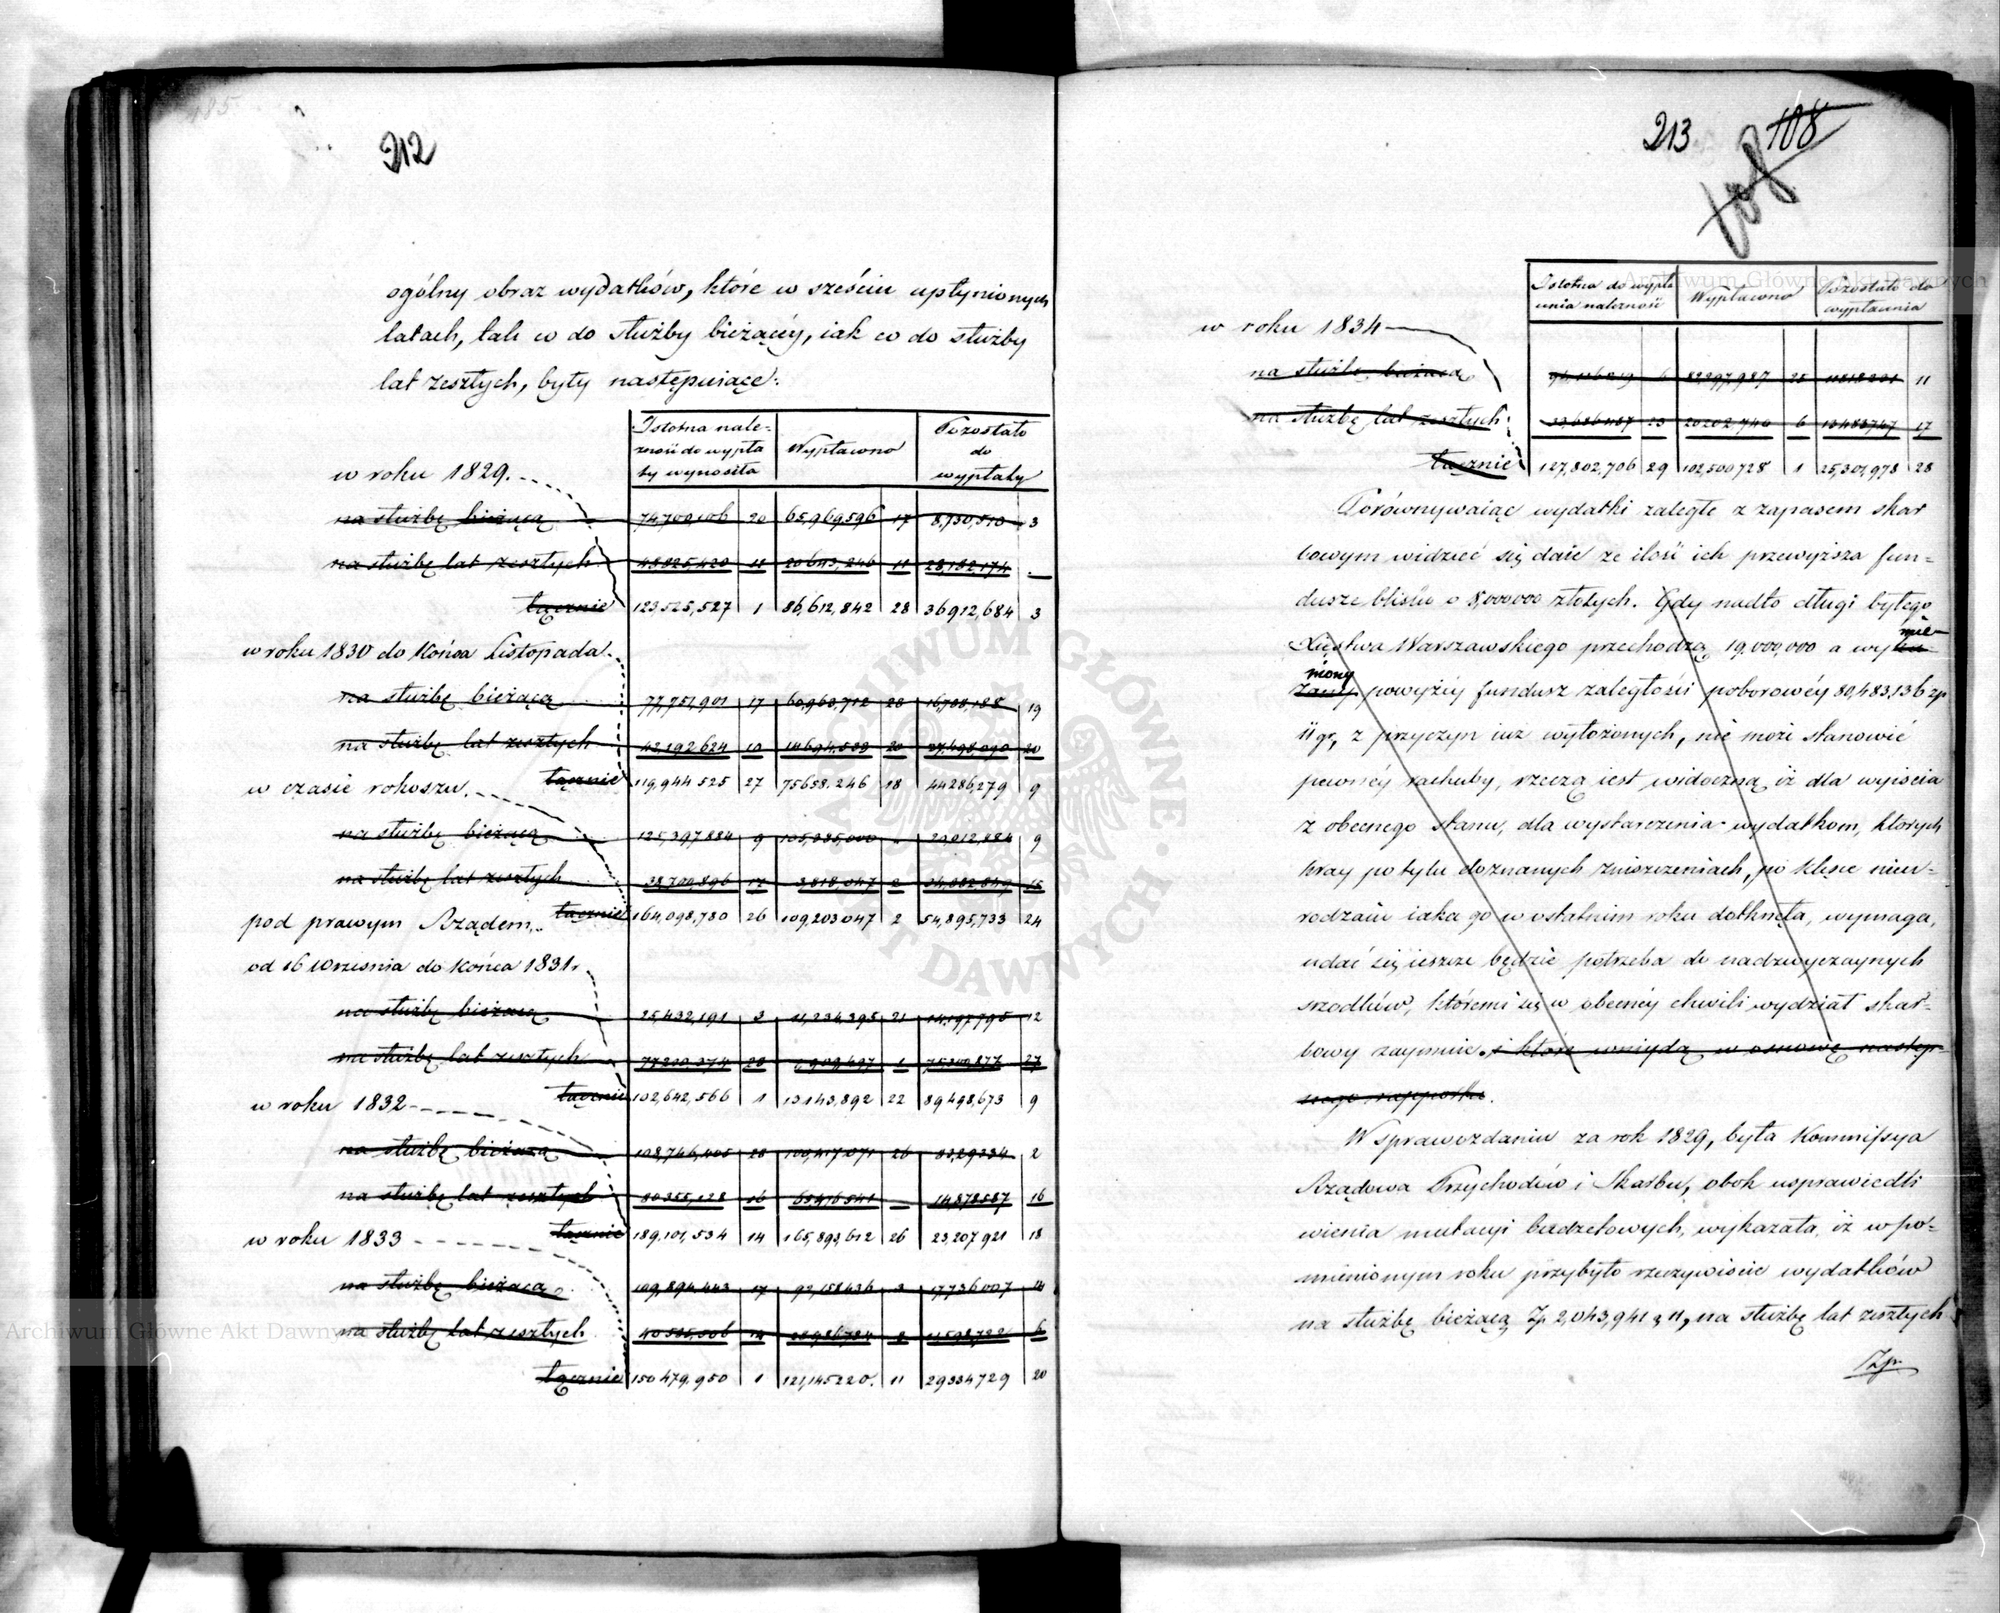 212
ogólny obraz wydatków, które w sześciu upłynionych
latach, tak co do służby bieżącéy, iak co do służby
lat zeszłych, były następuiące:
Istotna nale- Wypłacono Pozostało
żność do wypła do
ty wynosiła wypłaty
w roku 1829.
na służbę bieżącą 74,700,106 20 65,969,596 17 8,730,510 3
na służbę lat zeszłych 48,825,420 11 20,643,246 11 28,182,174 -
łącznie 123,525,527 1 86,612,842 28 36,912,684 3
w roku 1830 do końca Listopada
na służbę bieżącą 77,751,901 17 60,963,712 28 16,788,188 19
na służbę lat zeszłych 42,192,624 10 14,694,533 20 27,498,090 20
łącznie 119,944,525 27 75,658,246 18 44,286,279 9
w czasie rokoszu
na służbę bieżącą 125,397,884 9 105,385,000 „ 20,012,884 9
na służbę lat zeszłych 38,700,896 17 3,818,047 2 34,882,849 15
łącznie 164,098,780 26 109,203,047 2 54,895,733 24
pod prawym Rządem
od 16 Września do końca 1831.
na służbę bieżącą 25,432,191 3 11,234,395 21 14,197,795 12
na służbę lat zeszłych 77,210,374 28 1,909,497 1 75,300,877 27
łącznie 102,642,566 1 13,143,892 22 89,498,673 9
w roku 1832
na służbę bieżącą 108,746,405 28 100,417,071 26 8,329,334 2
na służbę lat zeszłych 80,355,128 16 65,476,541 - 14,878,587 16
łącznie 189,101,534 14 165,893,612 26 23,207,921 18
w roku 1833
na służbę bieżącą 109,894,443 17 92,158,436 3 17,736,007 14
na służbę lat zeszłych 40,585,506 14 28,986,784 8 11,598,722 6
łącznie 150,479,950 1 121,145,220. 11 29,334,729 20
213 108
108
Istotna do wypła Wypłacono Pozostało do
cenia należność wypłacenia
w roku 1834
na służbę bieżącą 94,116,219 6 82,297,987 25 11,818,231 11
na służbę lat zeszłych 33,686,487 23 20,202,740 6 13,483,747 17
łącznie 127,802,706 29 102,500,728 1 25,301,978 28
Porównywaiąc wydatki zaległe z zapasem skar
bowym widzieć się daie że ilość ich przewyższa fun-
dusze blisko o 8,000,000 złotych. Gdy nadto długi byłego
Xięstwa Warszawskiego przechodzą 19,000,000 a wy mie-
niony powyżéy fundusz zaległości poborowéy 80,483,136 zp
11 gr, z przyczyn iuż wyłożonych, nie może stanowić
pewnéy rachuby, rzeczą iest widoczną iż dla wyiścia
z obecnego stanu, dla wystarczenia wydatkom, których
kray po tylu doznanych zniszczeniach, po klęsce nieu-
rodzaiu iaka go w ostatnim roku dotknęła, wymaga,
udać się ieszcze będzie potrzeba do nadzwyczaynych
srzodków, któremi się w obecnéy chwili wydział skar-
bowy zaymuie. i które wniydą w osnowę następ-
nego rapportu.
W sprawozdaniu za rok 1829, była Kommissya
Rządowa Przychodów i Skarbu, obok usprawiedli
wienia mutacyi budżetowych, wykazała, iż w po-
mienionym roku przybyło rzeczywiście wydatków
na służbę bieżącą Zp 2,043,941 g 11, na służbę lat zeszłych
Zp.
Archiwum Główne Akt Dawnych
Archiwum Główne Akt Dawnych
ARCHIWUM GŁÓWNE AKT DAWNYCH